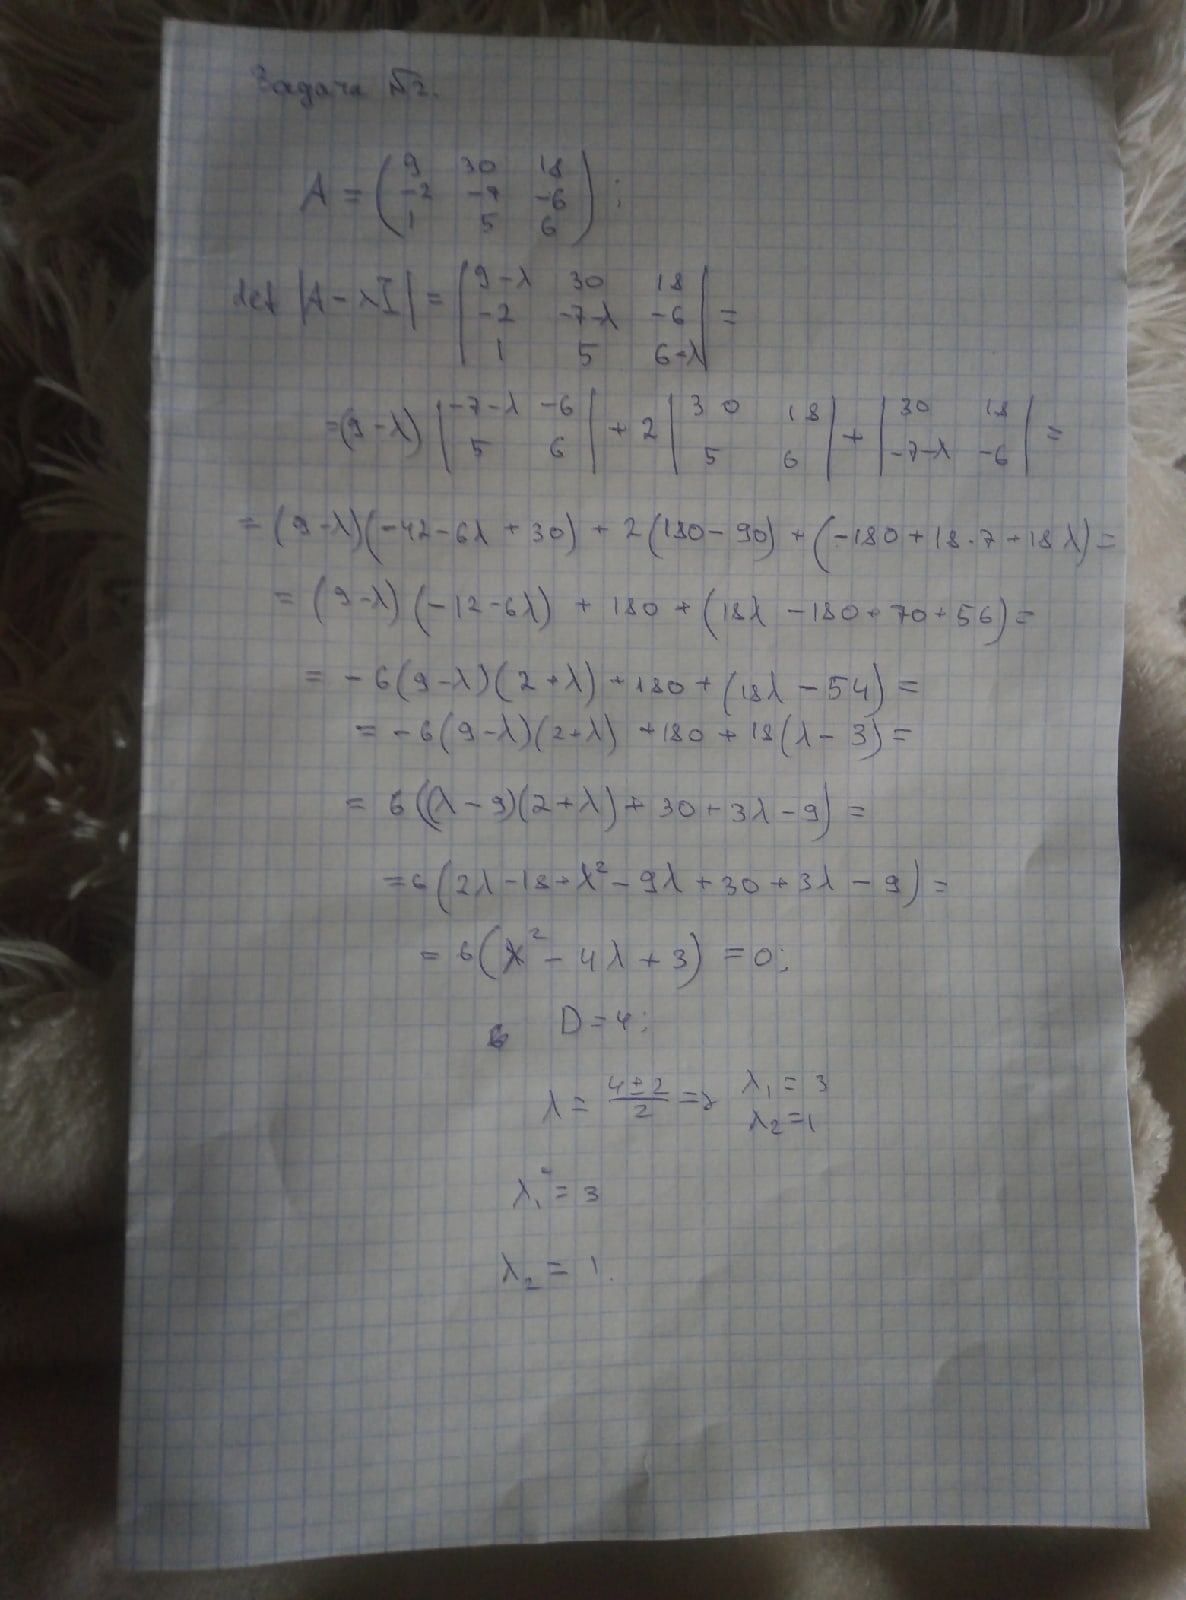 Задача №2.
A = ( 9 30 18
-2 -7 -6
1 5 6 ) ;
det |A - λI| = | 9-λ 30 18
-2 -7-λ -6
1 5 6-λ | =
= (9-λ) | -7-λ -6
5 6 | + 2 | 30 18
5 6 | + | 30 18
-7-λ -6 | =
= (9-λ)(-42-6λ+30) + 2(180-90) + (-180+18·7+18λ) =
= (9-λ)(-12-6λ) + 180 + (18λ -180+70+56) =
= -6(9-λ)(2+λ) +180 + (18λ - 54) =
= -6(9-λ)(2+λ) +180 + 18(λ-3) =
= 6((λ-9)(2+λ) + 30 + 3λ - 9) =
= 6(2λ-18+λ²-9λ+30+3λ-9) =
= 6(λ²-4λ+3) = 0;
D = 4;
λ = (4±2)/2 => λ₁ = 3
λ₂ = 1
λ₁ = 3
λ₂ = 1.